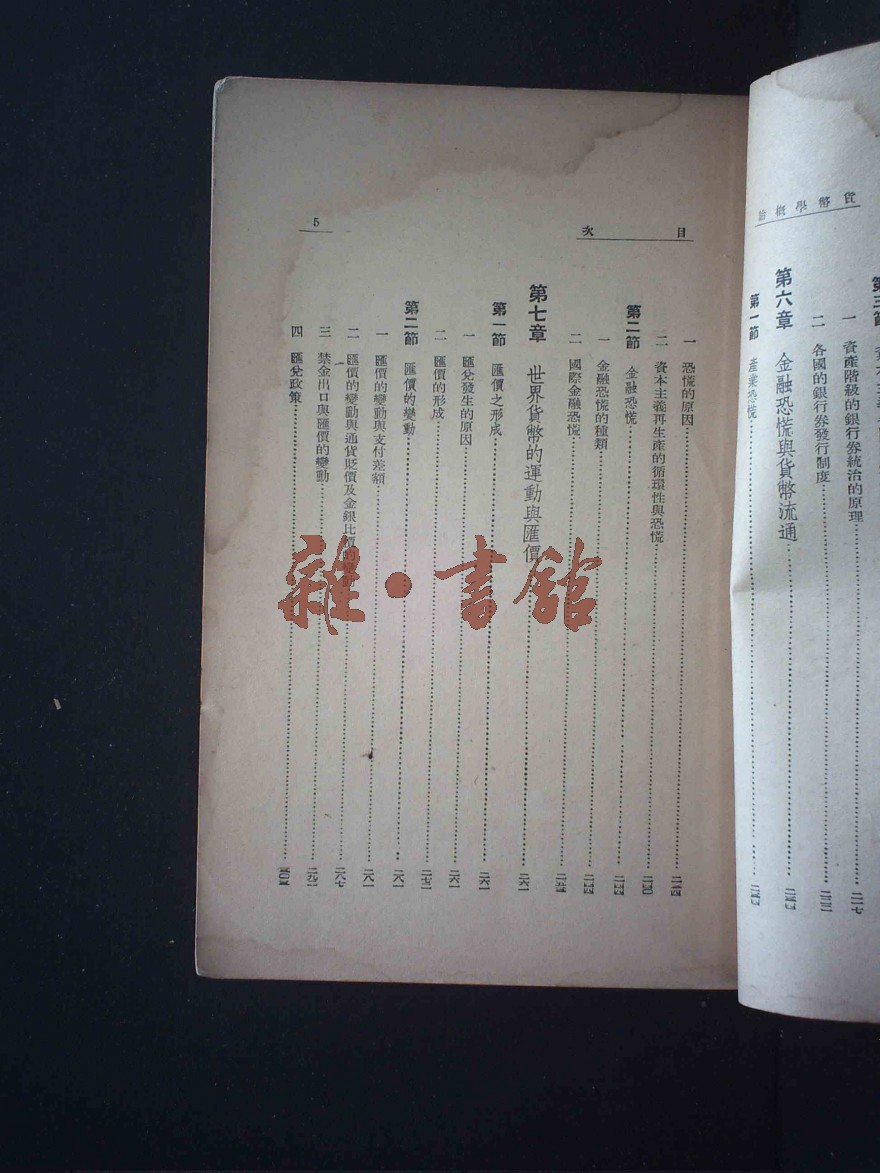 貨幣學概論
第三節
一 資產階級的銀行券統治的原理 二一七
二 各國的銀行券發行制度
第六章 金融恐慌與貨幣流通
第一節 產業恐慌
目 次
5
一 恐慌的原因
二 資本主義再生產的循環性與恐慌
第二節 金融恐慌
一 金融恐慌的種類
二 國際金融恐慌
第七章 世界貨幣的運動與匯價 二六一
第一節 匯價之形成 二六一
一 匯兌發生的原因 二六一
二 匯價的形成
第二節 匯價的變動 二八一
一 匯價的變動與支付差額 二八一
二 匯價的變動與通貨貶價及金銀比價的變動 二八七
三 禁金出口與匯價的變動
四 匯兌政策
雜·書館